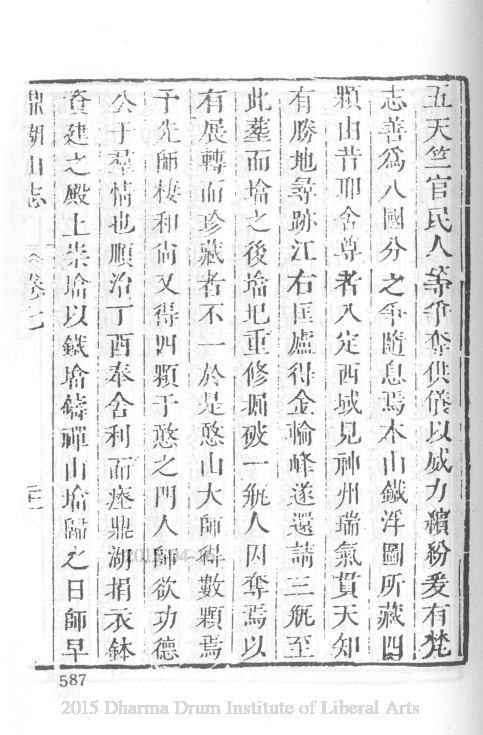 五天竺官民人等爭奪供儀以威力繽紛爰有梵
志善爲八國分之爭隨息焉本山鐵浮圖所藏四
顆由昔耶舍尊者入定西域見神州瑞氣貫天知
有勝地尋跡江右匡廬得金輪峰遂還請三瓶至
此塟而墖之後墖圯重修掘破一瓶人因奪焉以
有展轉而珍藏者不一於是憨山大師得數顆焉
予先師棲和尚又得四顆于憨之門人師欲功德
公于羣情也順治丁酉奉舍利而瘞鼎湖捐衣鉢
資建之殿上崇墖以鐵墖鑄禪山墖歸之日師早
鼎湖山志 卷之七
587
2015 Dharma Drum Institute of Liberal Arts